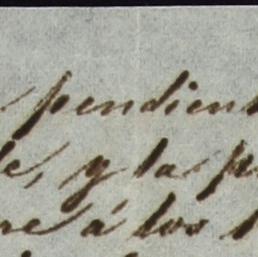 pendient
le, y la p
re á los